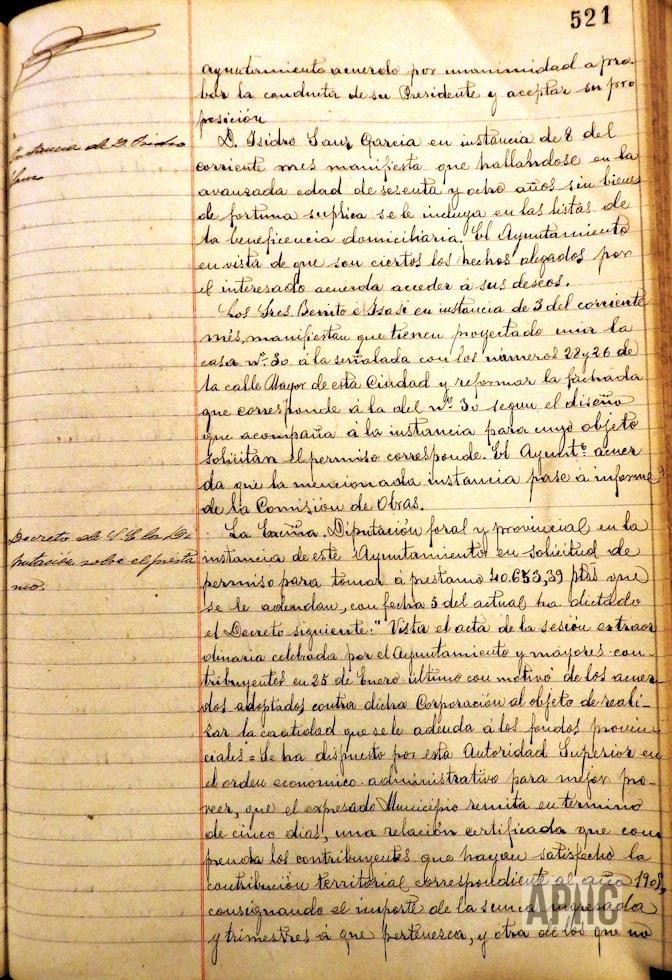 521
ayuntamiento acuerdo por unanimidad apro-
bar la conducta de su Presidente y aceptar su pro
posición
Instancia de D. Isidro
D. Isidro Sanz Garcia en instancia de 8 del
corriente mes manifiesta que hallandose en la
avanzada edad de sesenta y ocho años sin bienes
de fortuna suplica se le incluya en las listas de
la beneficencia domiciliaria. El Ayuntamiento
en vista de que son ciertos los hechos alegados por
el interesado acuerda acceder á sus deseos.
Los Sres. Benito e Isasi en instancia de 3 del corriente
mes, manifiestan que tienen proyectado unir la
casa nº 30 á la señalada con los números 28 y 26 de
la calle Mayor de esta Ciudad y reformar la fachada
que corresponde á la del nº 30 segun el diseño
que acompaña á la instancia para cuyo objeto
solicitan el permiso corresponde. El Ayuntº acuer
da que la mencionada instancia pase á informe
de la Comisión de Obras.
Decreto de S.E. la Di
putación sobre el présta
mo.
La Excma. Diputación foral y provincial en la
instancia de este Ayuntamiento en solicitud de
permiso para tomar á prestamo 40.653,39 ptas que
se le adeudan, con fecha 5 del actual ha dictado
el Decreto siguiente: "Vista el acta de la sesión extraor
dinaria celebrada por el Ayuntamiento y mayores con-
tribuyentes en 25 de Enero último con motivo de los acuer-
dos adoptados contra dicha Corporación al objeto de reali-
zar la cantidad que se le adeuda á los fondos provin-
ciales = Se ha dispuesto por esta Autoridad Superior en
el orden economico-administrativo para mejor pro-
veer, que el expresado Municipio remita en termino
de cinco dias, una relación certificada que com
prenda los contribuyentes que hayan satisfecho la
contribución territorial correspondiente al año 1905,
consignando el importe de la suma ingresada
y trimestres á que pertenezca, y otra de los que no
APHC